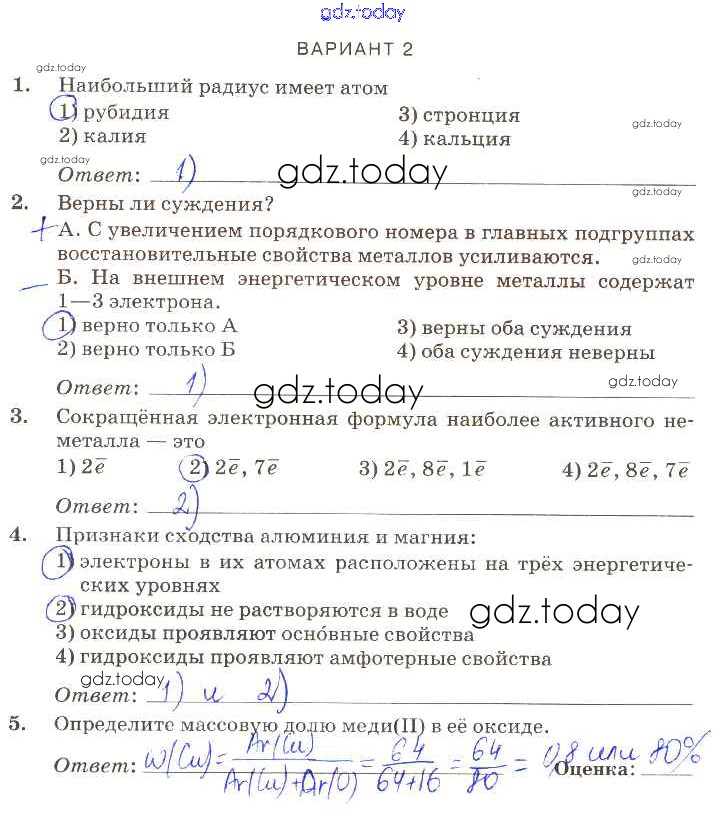 gdz.today
ВАРИАНТ 2
gdz.today
1. Наибольший радиус имеет атом
1) рубидия 3) стронция
gdz.today
2) калия 4) кальция
gdz.today
Ответ: 1) gdz.today
gdz.today
2. Верны ли суждения?
+ А. С увеличением порядкового номера в главных подгруппах
восстановительные свойства металлов усиливаются.
gdz.today
— Б. На внешнем энергетическом уровне металлы содержат
1—3 электрона.
1) верно только А 3) верны оба суждения
2) верно только Б 4) оба суждения неверны
Ответ: 1) gdz.today gdz.today
3. Сокращённая электронная формула наиболее активного не-
металла — это
1) 2e̅ 2) 2e̅, 7e̅ 3) 2e̅, 8e̅, 1e̅ 4) 2e̅, 8e̅, 7e̅
Ответ: 2)
4. Признаки сходства алюминия и магния:
1) электроны в их атомах расположены на трёх энергетиче-
ских уровнях
2) гидроксиды не растворяются в воде gdz.today
3) оксиды проявляют оснóвные свойства
4) гидроксиды проявляют амфотерные свойства
gdz.today
Ответ: 1) и 2)
5. Определите массовую долю меди(II) в её оксиде.
Ответ: W(Cu) = Ar(Cu) / Ar(Cu)+Ar(O) = 64 / 64+16 = 64 / 80 = 0,8 или 80%
Оценка: